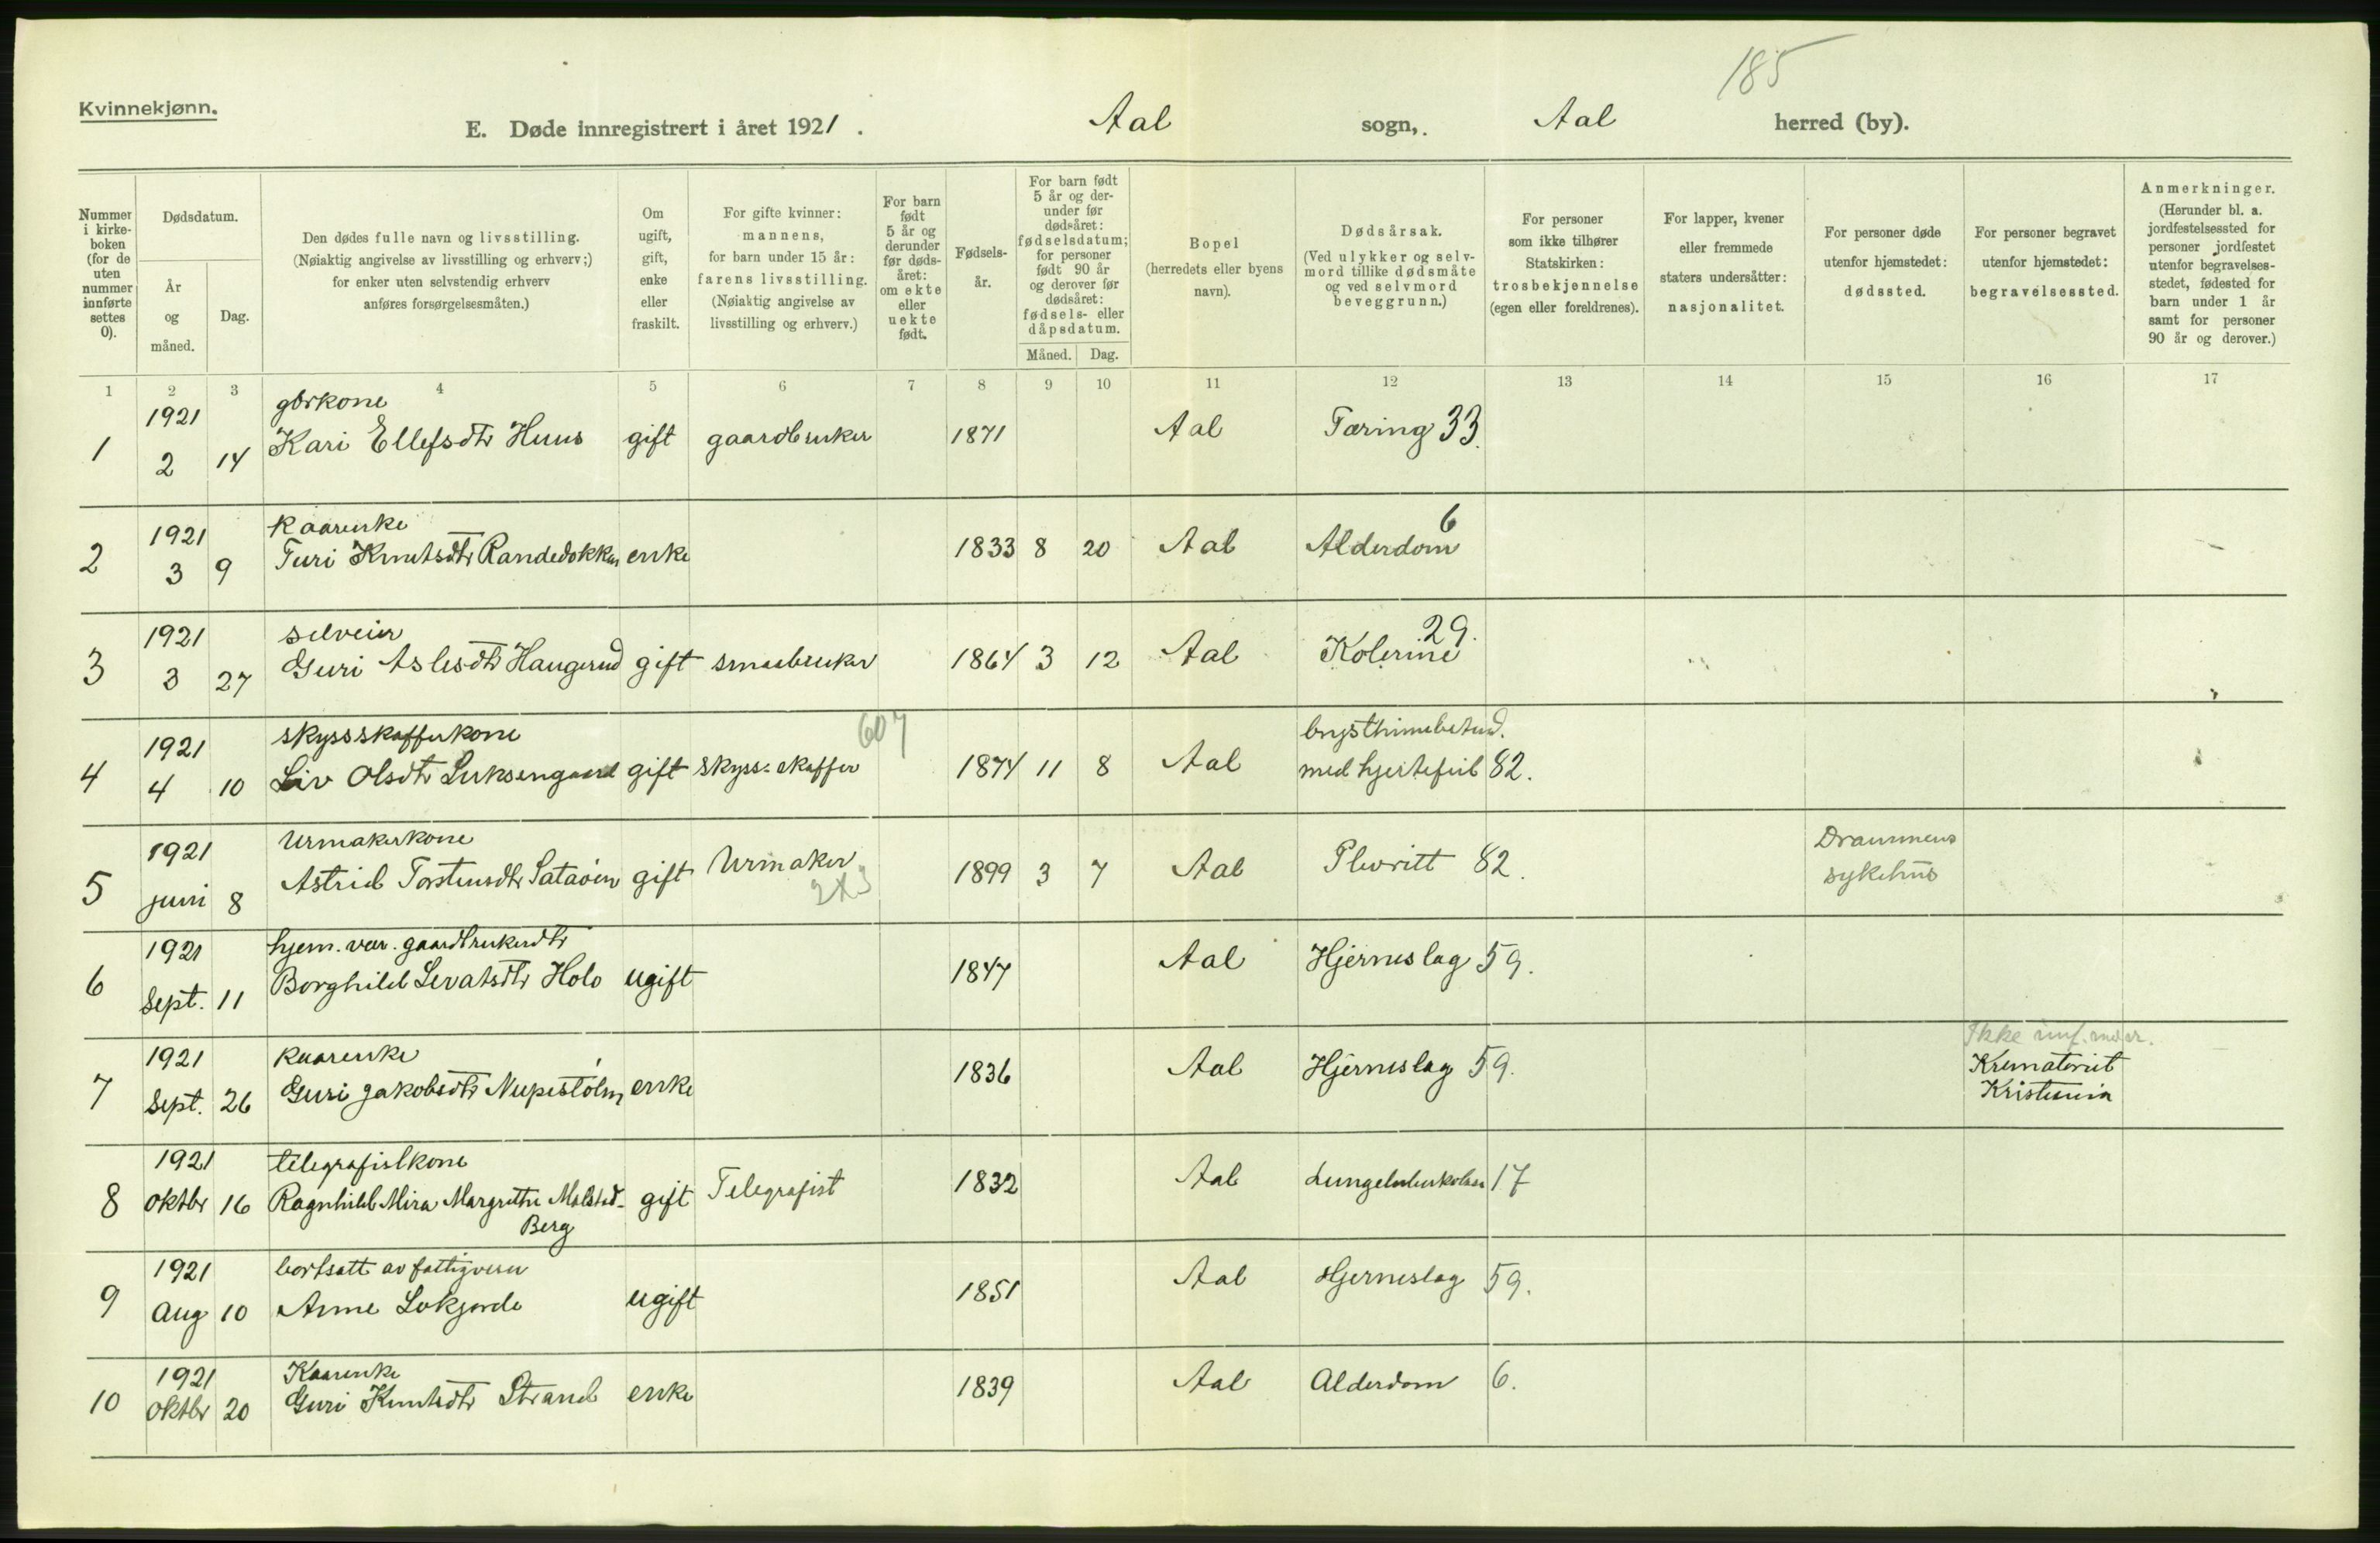 185
Kvinnekjønn.
E. Døde innregistrert i året 1921. Aal sogn, Aal herred (by).
Nummer i kirkeboken (for de uten nummer innførte settes 0).
Dødsdatum.
År og måned.
Dag.
Den dødes fulle navn og livsstilling.
(Nøiaktig angivelse av livsstilling og erhverv;)
for enker uten selvstendig erhverv
anføres forsørgelsesmåten.)
Om ugift, gift, enke eller fraskilt.
For gifte kvinner: mannens, for barn under 15 år: farens livsstilling. (Nøiaktig angivelse av livsstilling og erhverv.)
For barn født 5 år og derunder før dødsåret: om ekte eller uekte født.
Fødselsår.
For barn født 5 år og derunder før dødsåret: fødselsdatum; for personer født 90 år og derover før dødsåret: fødsels- eller dåpsdatum.
Måned. Dag.
Bopel (herredets eller byens navn).
Dødsårsak. (Ved ulykker og selvmord tillike dødsmåte og ved selvmord beveggrunn.)
For personer som ikke tilhører Statskirken: trosbekjennelse (egen eller foreldrenes).
For lapper, kvener eller fremmede staters undersåtter: nasjonalitet.
For personer døde utenfor hjemstedet: dødssted.
For personer begravet utenfor hjemstedet: begravelsessted.
Anmerkninger. (Herunder bl. a. jordfestelsessted for personer jordfestet utenfor begravelsesstedet, fødested for barn under 1 år samt for personer 90 år og derover.)
1 2 3 4 5 6 7 8 9 10 11 12 13 14 15 16 17
1921 gbrkone
1 2 14 Kari Ellefsdtr Huus gift gaardbruker 1871 Aal Tæring 33.
1921 Kaarenke 6
2 3 9 Turi Knutsdtr Randedokken enke 1833 8 20 Aal Alderdom
1921 selveier 29.
3 3 27 Guri Aslesdtr Haugerud gift smaabruker 1864 3 12 Aal Kolerine
1921 skyssskafferkone 607 brysthinnebetend.
4 4 10 Liv Olsdtr gift skyss-skaffer 1874 11 8 Aal med hjertefeil 82.
1921 Urmakerkone Drammens
5 juni 8 Astrid Torstensdtr Sataøien gift Urmaker 1899 3 7 Aal Plevritt 82. sykehus
1921 hjem. vær. gaardbrukerdtr
6 Sept. 11 Borghild Sevatsdtr Holo ugift 1847 Aal Hjerneslag 59.
Ikke
1921 Kaarenke Krematoriet
7 Sept. 26 Guri Jakobsdtr Nupestølen enke 1836 Aal Hjerneslag 59. Kristiania
1921 telegrafistkone
8 oktbr 16 Ragnhild Mira Margrethe gift Telegrafist 1832 Aal Lungetuberkolose 17
Berg
1921 bortsatt av fattigvesen
9 Aug 10 Anne Lokjorde ugift 1851 Aal Hjerneslag 59.
1921 Kaarenke
10 oktbr 20 Guri Knutsdtr Strand enke 1839 Aal Alderdom 6.